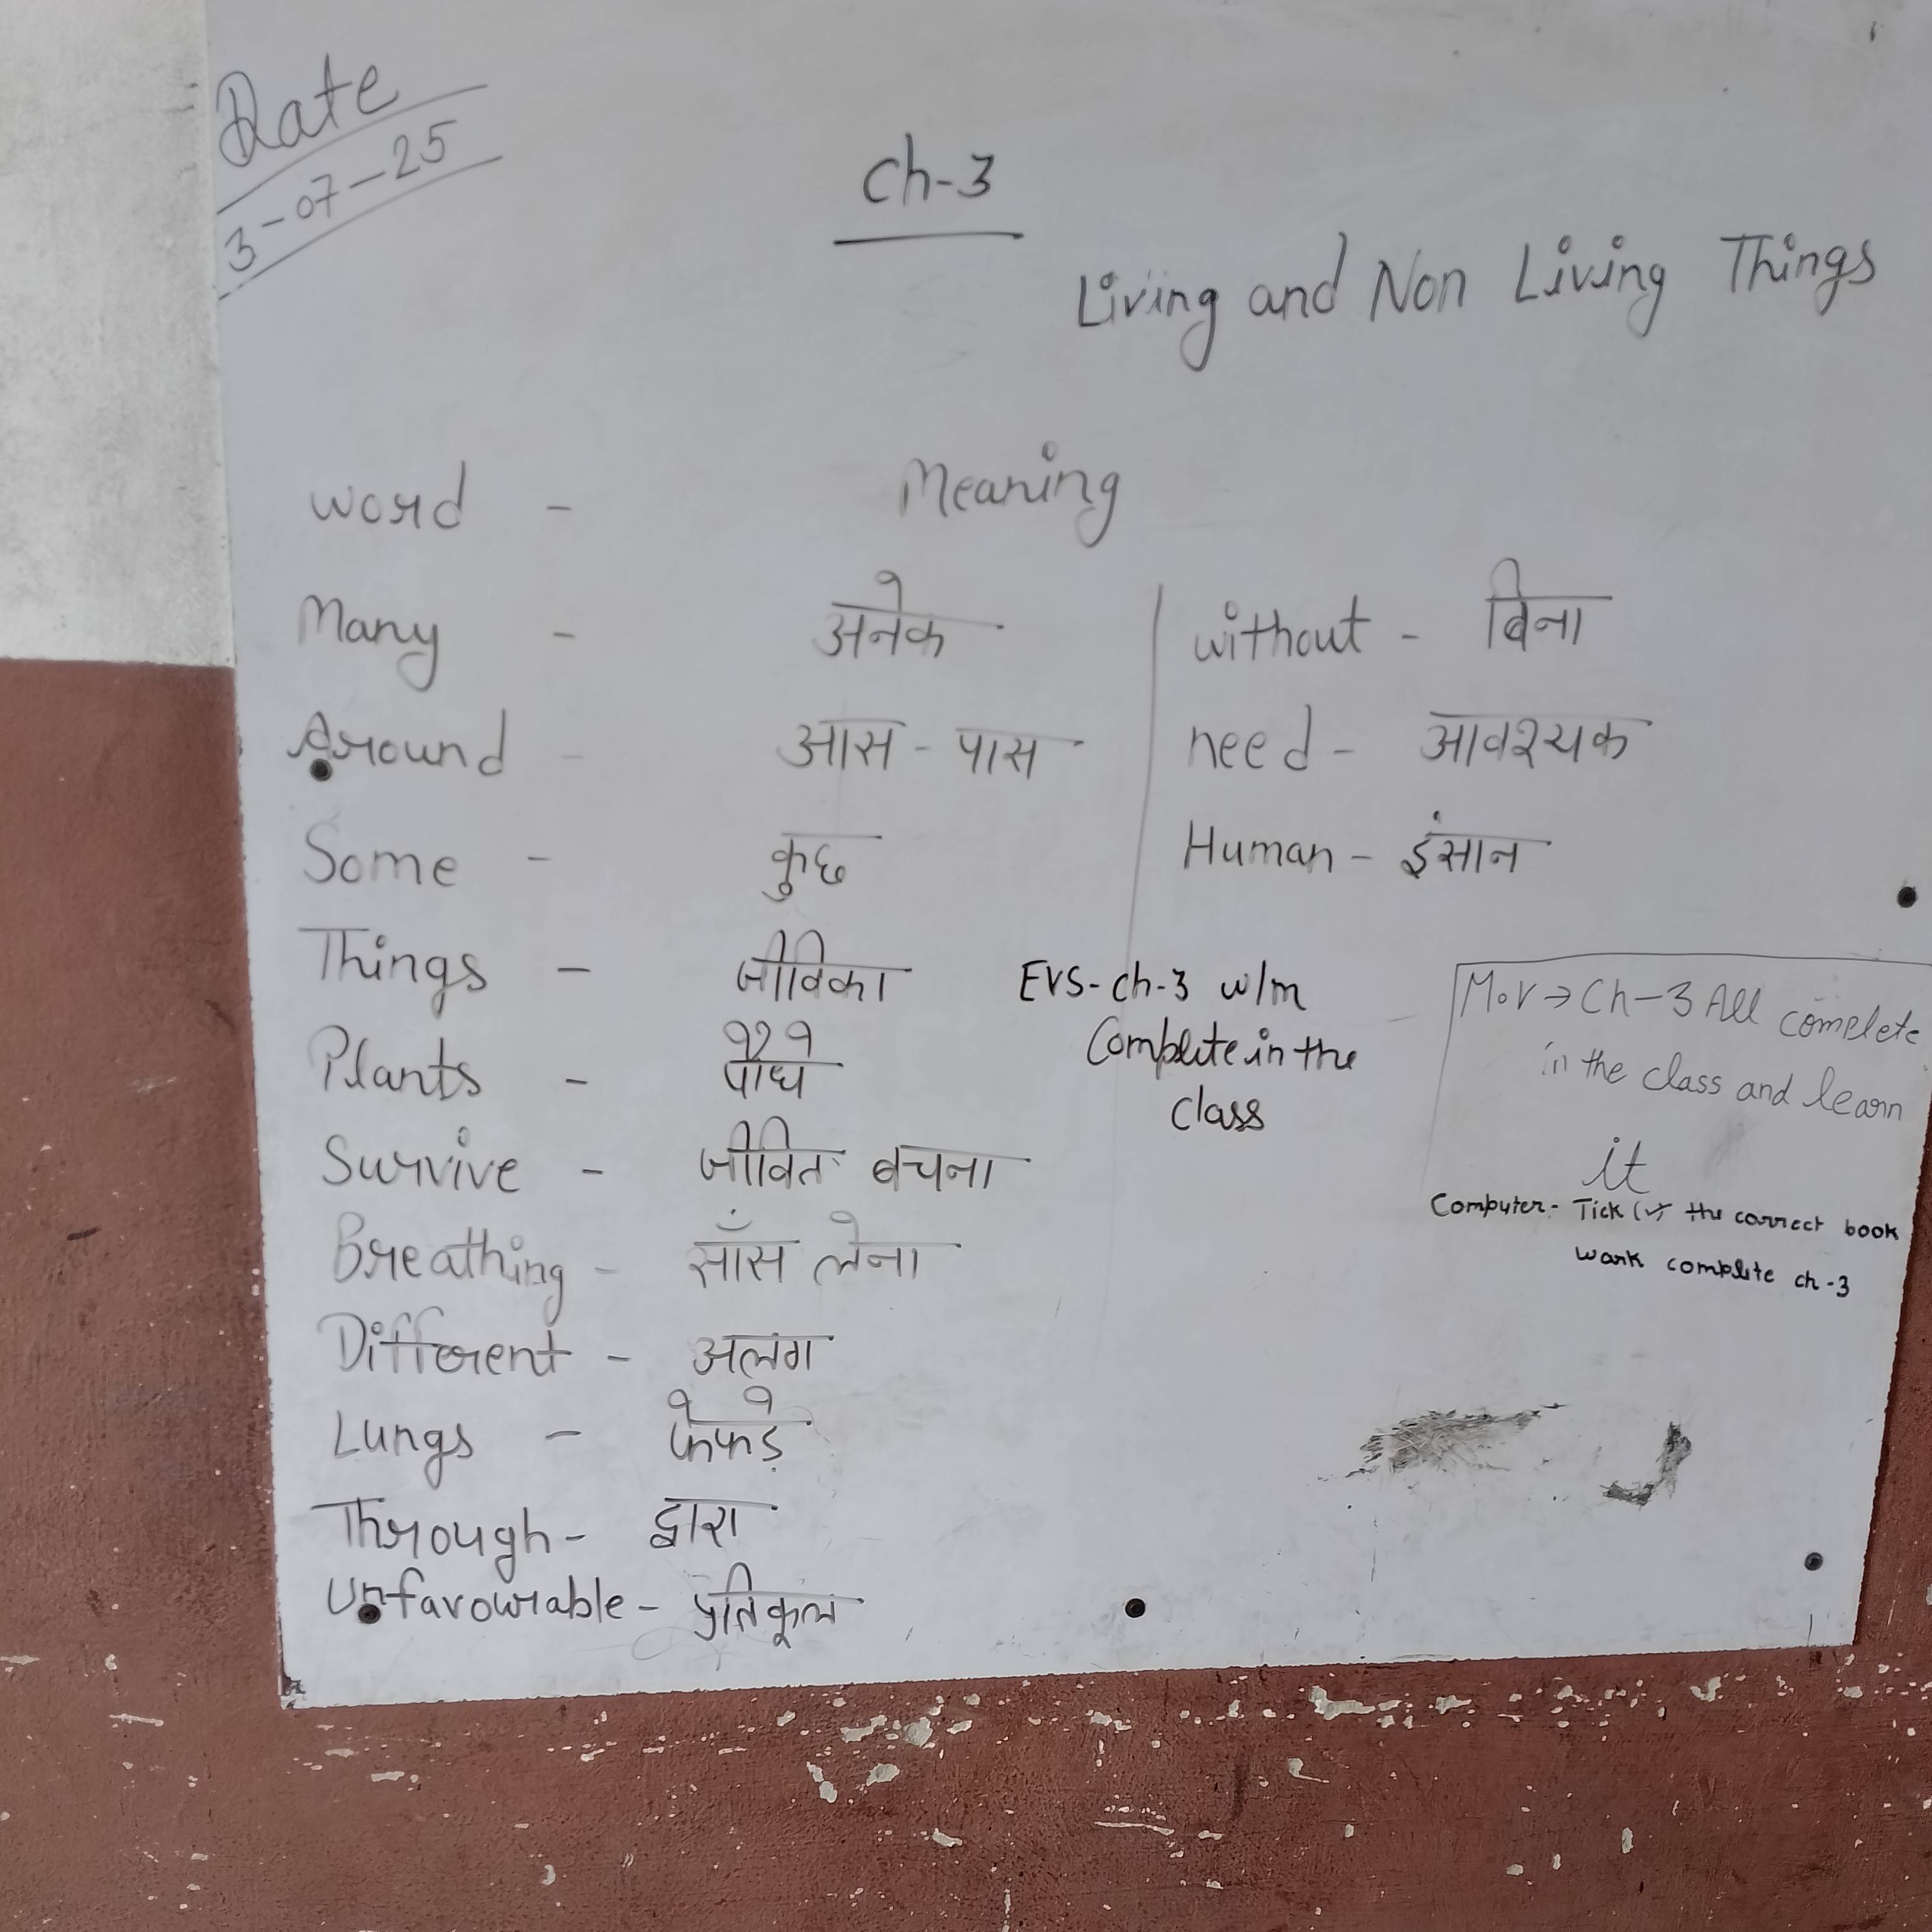 Date
3-07-25
Ch-3
Living and Non Living Things
word - Meaning
Many - अनेक
Around - आस-पास
Some - कुछ
Things - जीविका
Plants - पौधे
Survive - जीवित बचना
Breathing - साँस लेना
Different - अलग
Lungs - फेफड़े
Through - द्वारा
Unfavourable - प्रतिकूल
without - बिना
need - आवश्यक
Human - इंसान
EVS-ch-3 w/m
Complete in the
class
M.V→Ch-3 All complete
in the class and learn
it
Computer- Tick (✓) the correct book
work complete ch-3